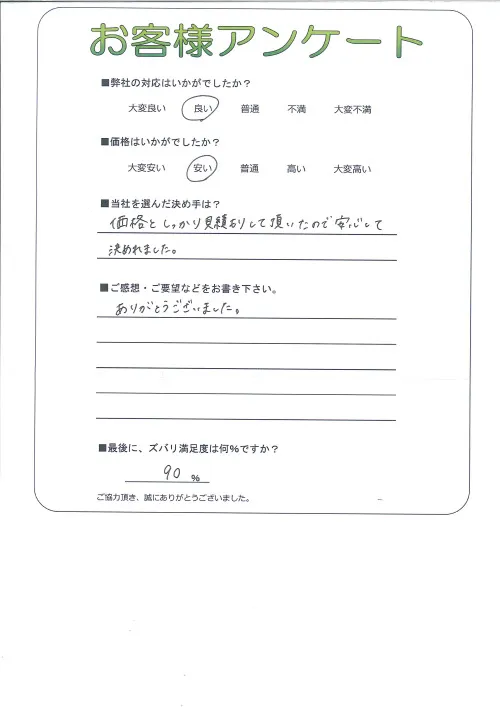 お客様アンケート
■弊社の対応はいかがでしたか？
大変良い 良い 普通 不満 大変不満
■価格はいかがでしたか？
大変安い 安い 普通 高い 大変高い
■当社を選んだ決め手は？
価格としっかり見積りして頂いたので安心して
決めれました。
■ご感想・ご要望などをお書き下さい。
ありがとうございました。
■最後に、ズバリ満足度は何%ですか？
90 %
ご協力頂き、誠にありがとうございました。